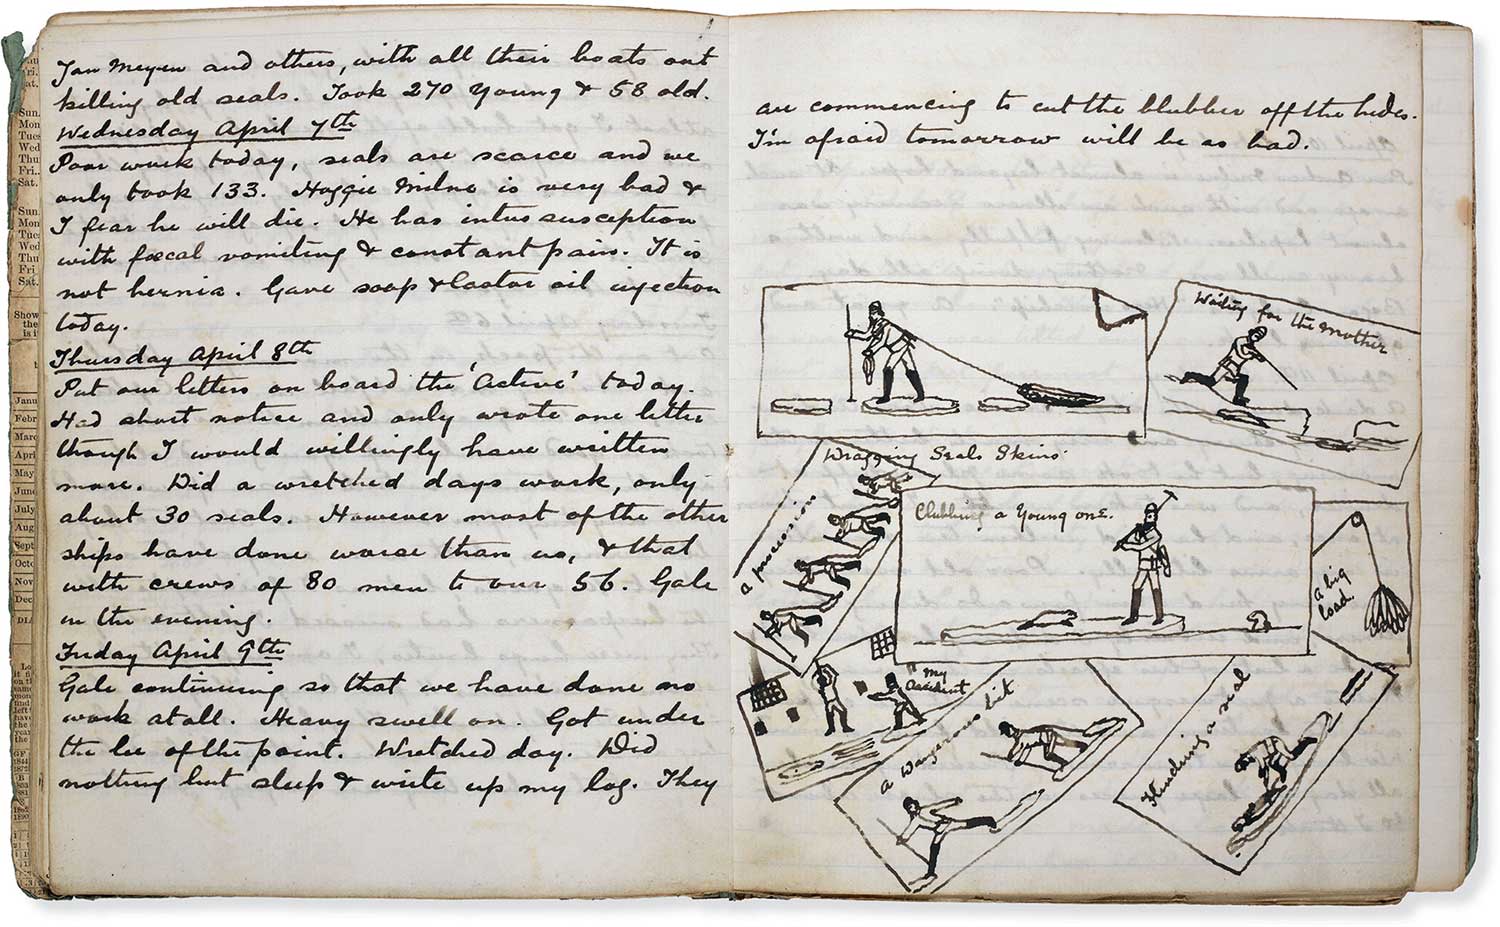 Jan Meyen and others, with all their boats out
killing old seals. Took 270 Young & 58 old.
Wednesday April 7th
Poor work today, seals are scarce and we
only took 133. Haggie Milne is very bad &
I fear he will die. He has intus susception
with fœcal vomiting & constant pain. It is
not hernia. Gave soap & Castor oil injection
today.
Thursday April 8th
Put our letters on board the 'Active' today.
Had short notice and only wrote one letter
though I would willingly have written
more. Did a wretched days work, only
about 30 seals. However most of the other
ships have done worse than us, & that
with crews of 80 men to our 56. Gale
in the evening.
Friday April 9th
Gale continuing so that we have done no
work at all. Heavy swell on. Got under
the lee of the point. Wretched day. Did
nothing but sleep & write up my log. They
are commencing to cut the blubber off the hides.
I'm afraid tomorrow will be as bad.
Waiting for the Mother
Dragging Seals Skins
A procession
Clubbing a Young one.
A big
load.
"My
Accident
A Dangerous bit
Flinching a seal
Sun.
Mon
Tues
Wed
Thu
Fri.
Sat.
Sun.
Mon
Tues
Wed
Thu
Fri
Sat.
Show
the
is i
Janu
Febr
Marc
Apri
May
June
July
Aug
Sept
Octo
Nov
Dec